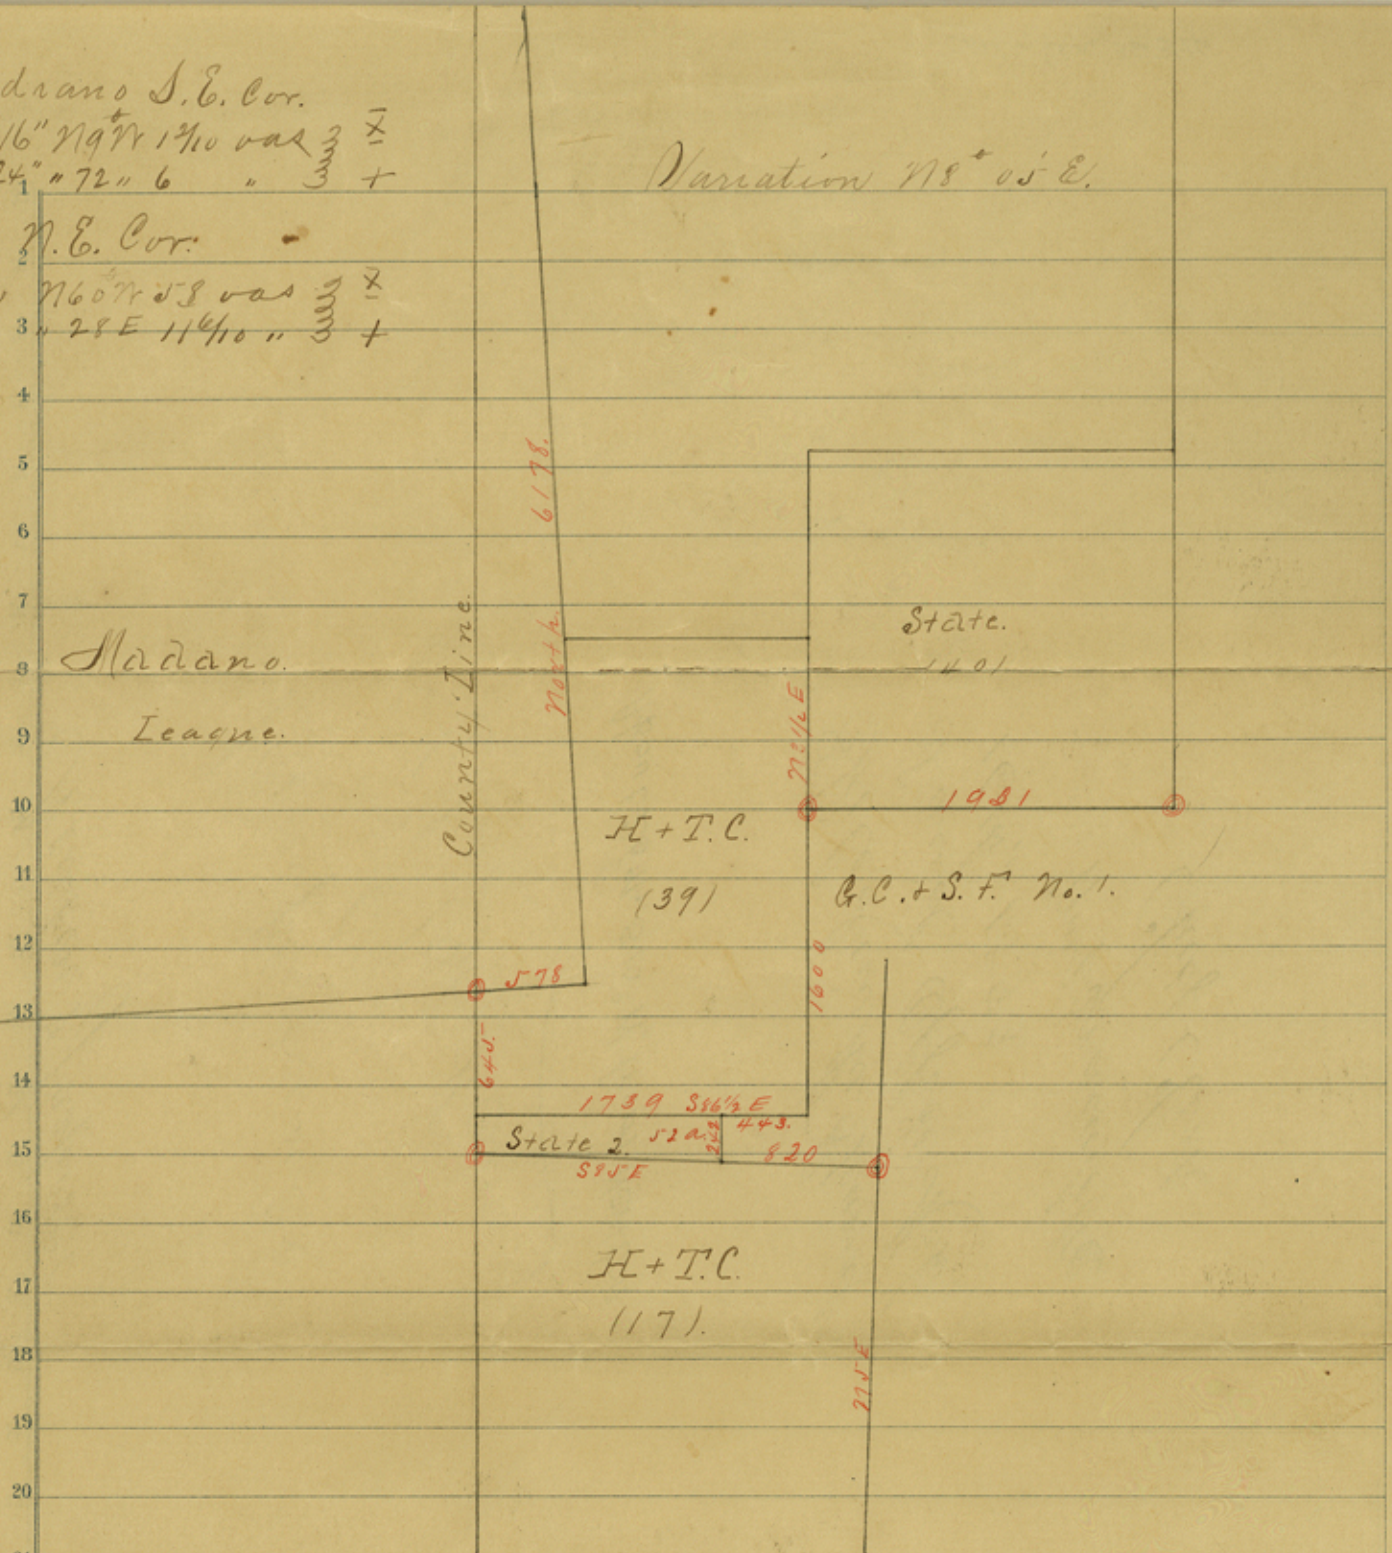 drano S.E. Cor.
16" N9°W 1 2/10 vas X
24" " 72 " 6 " +
N.E. Cor.
N60W 58 vas X
" 28E 11 6/10 " +
Variation N8° 05' E.
1
2
3
4
5
6
7
8
9
10
11
12
13
14
15
16
17
18
19
20
North 6178.
County Line.
Madrano.
League.
State.
1401
N3 1/2 E
1981
H + T. C.
(39)
G. C. + S. F. No. 1.
1600
578
645.
1739 S86 1/2 E
State 2. 52 a. 242 443.
820
S85E
H + T. C.
(17).
N5E